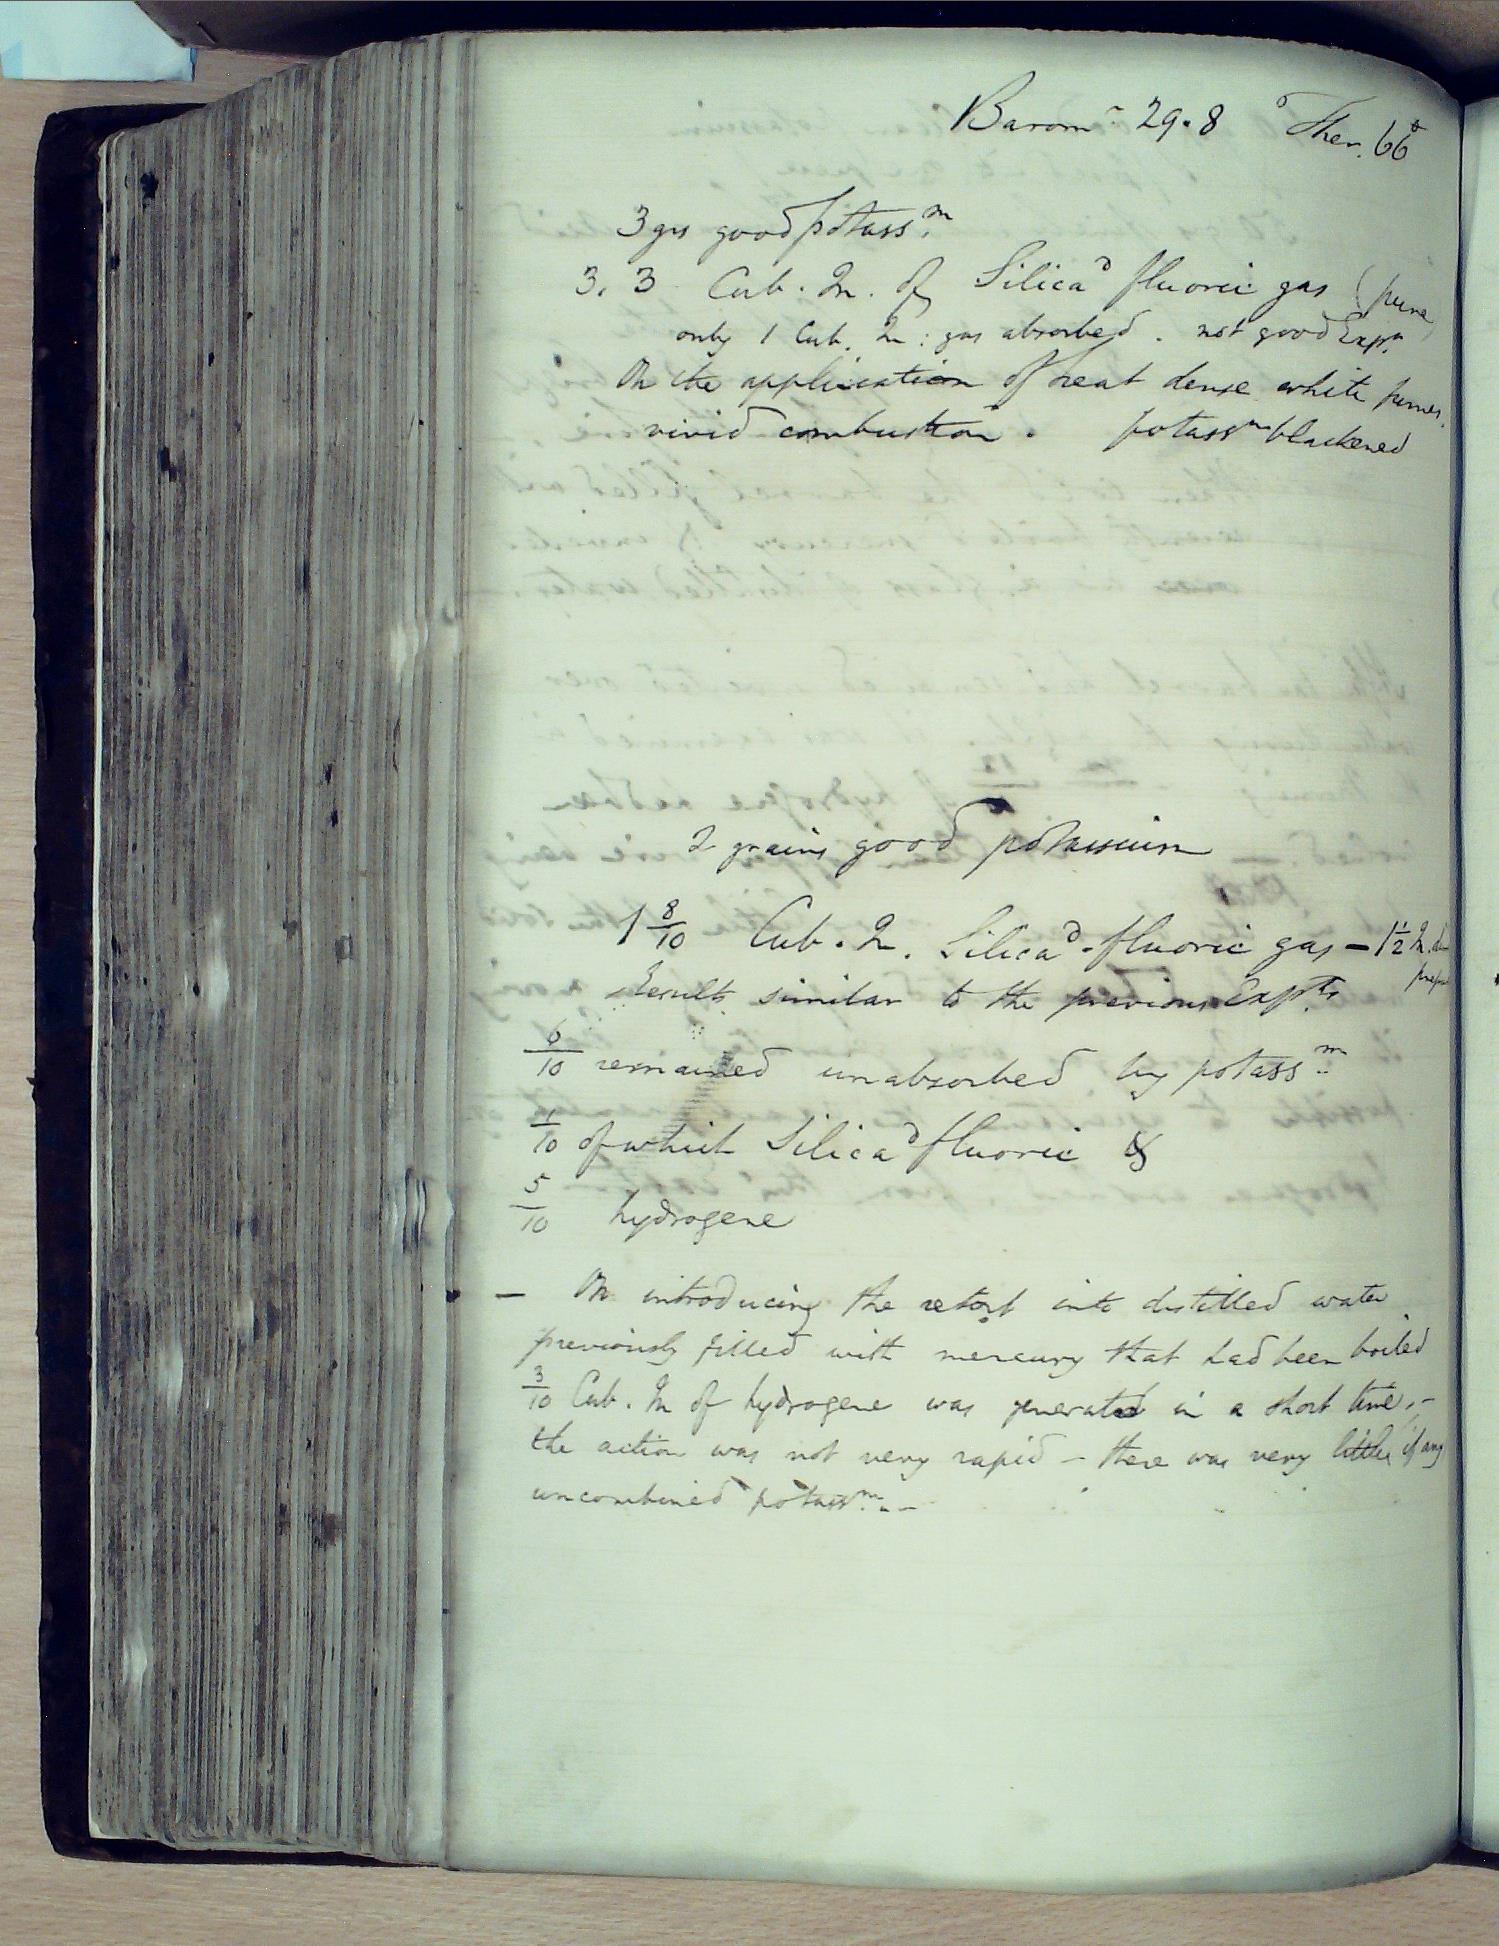 Barom.r 29.8 Ther. 66°
3 grs good potass.m
3.3 Cub. In. of Silica.d fluoric gas (pure
only 1 Cub. In: gas absorbed. not good Exp.n
On the application of heat dense white fumes.
vivid combustion. potass.m blackened
2 grains good potassium
1 8/10 Cub. In. Silica.d-fluoric gas - 1 1/2 In.
Results similar to the previous Exp.ts
6/10 remained unabsorbed by potass.m
1/10 of which Silica.d fluoric &
5/10 hydrogene
- On introducing the retort into distilled water
previously filled with mercury that had been boiled
3/10 Cub. In of hydrogene was generated in a short time, -
the action was not very rapid - there was very little if any
uncombined potass.m. -